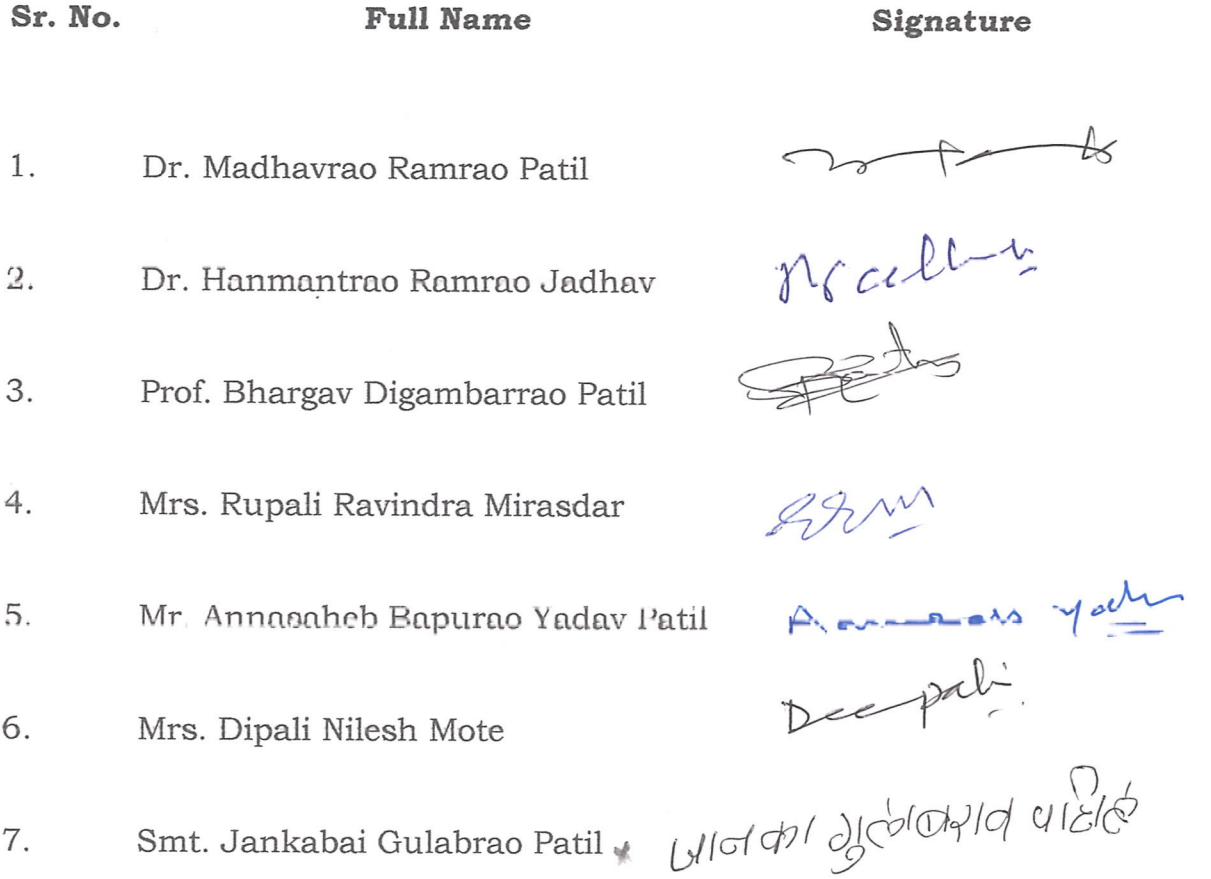 Sr. No. Full Name Signature
1. Dr. Madhavrao Ramrao Patil
2. Dr. Hanmantrao Ramrao Jadhav
3. Prof. Bhargav Digambarrao Patil
4. Mrs. Rupali Ravindra Mirasdar
5. Mr. Annasaheb Bapurao Yadav Patil
6. Mrs. Dipali Nilesh Mote Deepali
7. Smt. Jankabai Gulabrao Patil